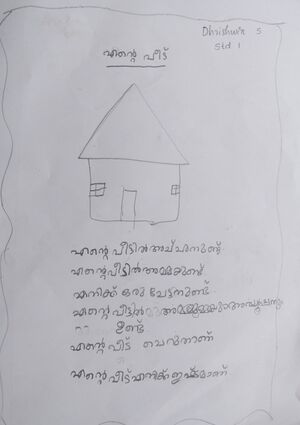 Dhrishwin S
Std 1
എന്റെ വീട്
എന്റെ വീട്ടിൽ അച്ചനുണ്ട്
എന്റെ വീട്ടിൽ അമ്മയുണ്ട്
എനിക്ക് ഒരു ചേട്ടനുണ്ട്
എന്റെ വീട്ടിൽ
ഉണ്ട്
എന്റെ വീട് ചെറുതാണ്
എന്റെ വീട് എനിക്ക് ഇഷ്ടമാണ്